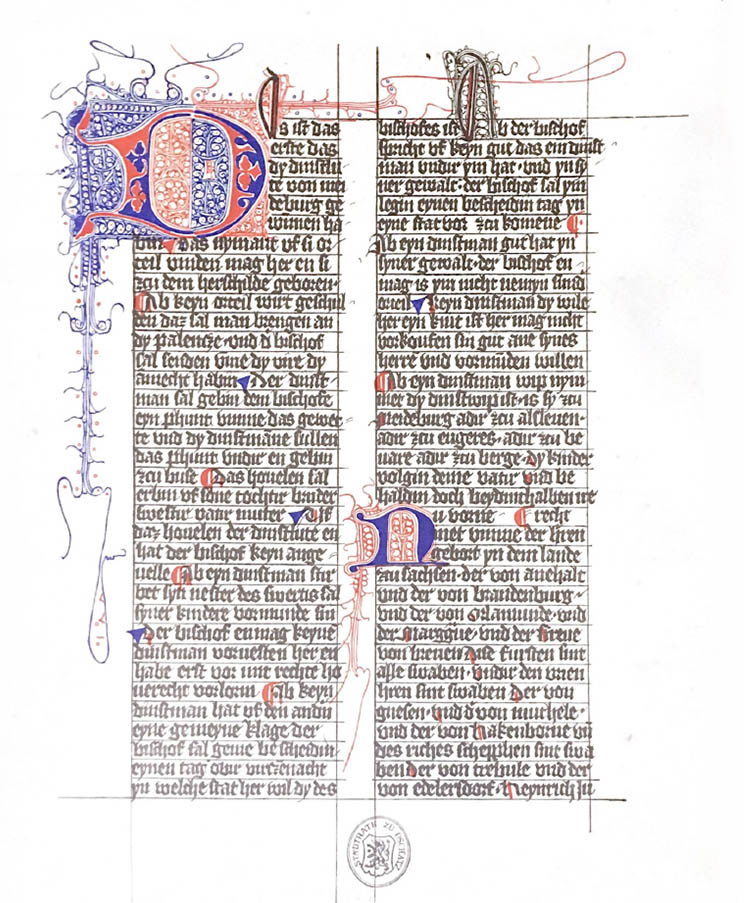 Dis ist das
erste das
dy dinstlu
te von mei
deburg ge
wunnen ha
bin Das nymant vf si or
teil vinden mag her en si
zcu dem herschilde geboren
Ab keyn orteil wirt geschul
den daz sal man brengen an
dy palencze vnd d bischof
sal senden vme dy vire dy
ammecht habin Der dinst
man sal gebin dem bischofe
eyn phunt vnme das gewer
te vnd dy dinstmane sullen
das phunt vndir en gebin
zcu buse Das houelen sal
erbin vf sone tochtir bruder
swestir vatir muter Dis
daz houelen der dinstlute en
hat der bischof keyn ange
uelle Ab eyn dinstman stir
bet syn nester des swertis sal
syner kindere vormunde sin
Der bischof en mag keyne
dinstman voruesten her en
habe erst vor mit rechte ho
uerecht vorlorin Ab keyn
dinstman hat vf den andin
eyne gemeyne klage der
bischof sal geme bescheidin
eynen tag obir virczenacht
yn welche stat her wil dy des
bischofes ist Ab der bischof
spricht vf keyn gut das ein dinst
man vndir ym hat vnd yn sy
ner gewalt der bischof sal ym
legin eynen bescheidin tag yn
eyne stat vor zcu komene
Ab eyn dinstman gut hat yn
syner gewalt der bischof en
mag is ym nicht nemyn sundir
orteil Keyn dinstman dy wile
her eyn kint ist her mag nicht
vorkoufen sin gut ane synes
herre vnd vormunden willen
Ab eyn dinstman wip nym
met dy dinstwip ist is sy zcu
meideburg adir zcu alsleuen
adir zcu engeres adir zcu be
nare adir zcu berge dy kinder
volgin deme vatir vnd be
haldin doch beydinthalben ire
recht
Nu vorne
met vmme der hren
geburt yn dem lande
zcu sachsen der von anehalt
vnd der von brandenburg
vnd der von Orlamunde vnd
der Marggue vnd der Greue
von breuen dise fursten sint
alle swaben vndir den vrien
hren sint swaben Der von
gnesen vnd d von muchele
vnd der von Hakenborne vn
des riches schepphen sint swa
ben der von trebule vnd der
von edelersdorf Heynrich Ju
STADTRATH ZU OSCHATZ